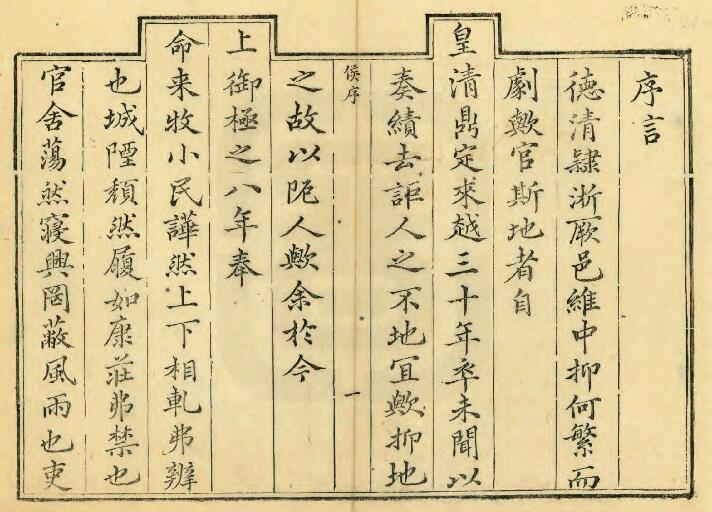 序言
德清隸浙厥邑維中抑何繁而
劇歟官斯地者自
皇清鼎定來越三十年率未聞以
奏績去詎人之不地宜歟抑地
侯序
一
之故以阨人歟余於今
上御極之八年奉
命来牧小民譁然上下相軋弗辨
也城堙頽然履如康莊弗禁也
官舍蕩然寢興罔蔽風雨也吏